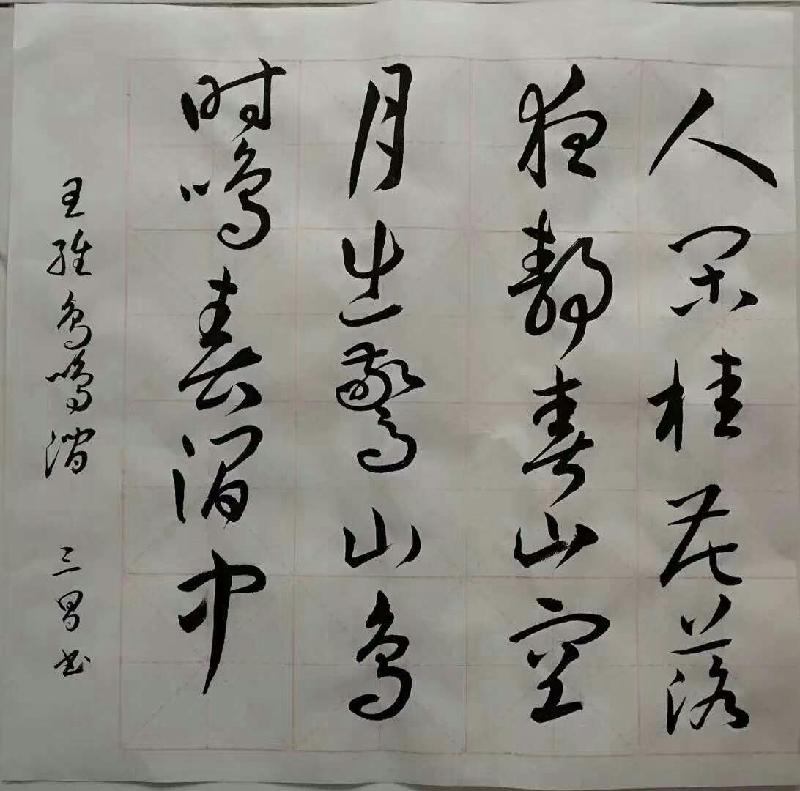 人闲桂花落
夜静春山空
月出惊山鸟
时鸣春涧中
王维鸟鸣涧 三昌书